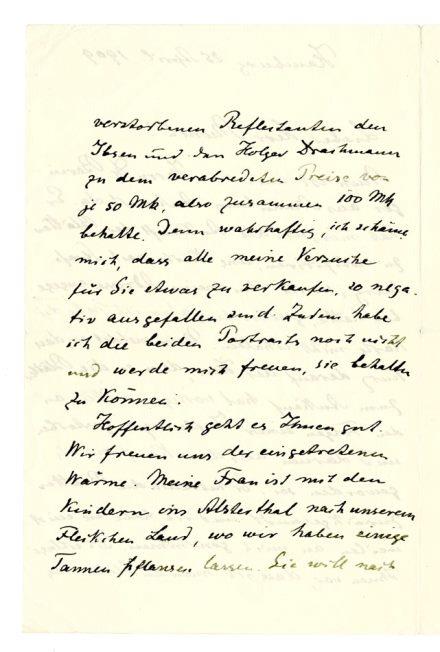 verstorbenen Reflectanten den
Ibsen und den Holger Drachmann
zu dem verabredeten Preise von
je 50 Mk, also zusammen 100 Mk
behalte. Denn wahrhaftig, ich schäme
mich, dass alle meine Versuche
für Sie etwas zu verkaufen, so nega-
tiv ausgefallen sind. Zudem habe
ich die beiden Portraits noch nicht
und werde mich freuen, sie behalten
zu können.
Hoffentlich geht es Ihnen gut.
Wir freuen uns der eingetretenen
Wärme. Meine Frau ist mit den
Kindern ins Alsterthal nach unserem
Fleckchen Land, wo wir haben einige
Tannen pflanzen lassen. Sie will nach